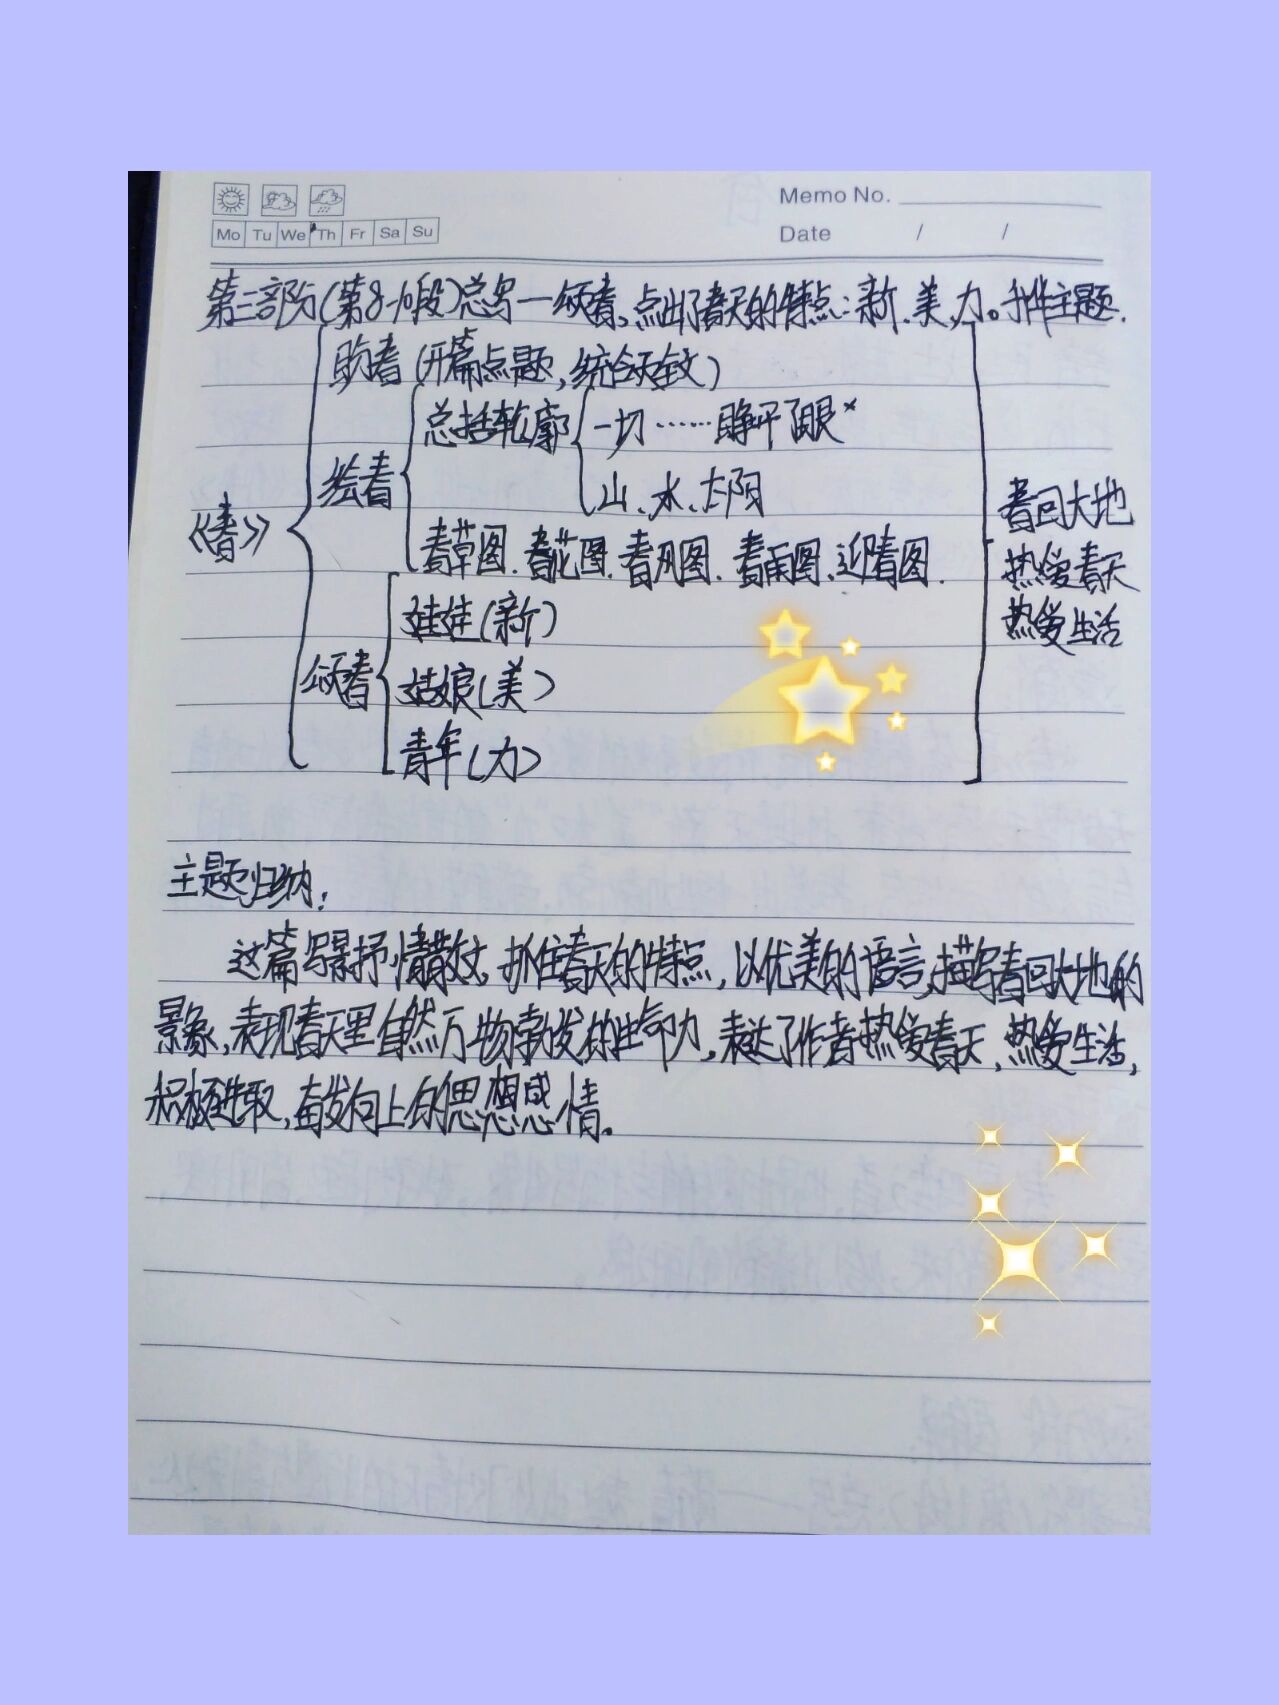 Memo No.
Mo Tu We Th Fr Sa Su
Date / /
第三部分(第8-10段)总写一颂春。点出了春天的特点:新、美、力。升华主题.
盼春(开篇点题,统领全文)
总括轮廓
一切……睁开了眼
绘春
山、水、太阳
《春》
春回大地
春草图.春花图.春风图.春雨图、迎春图.
热爱春天
娃娃(新)
热爱生活
颂春
姑娘(美)
青年(力)
主题归纳:
这篇写景抒情散文,抓住春天的特点,以优美的语言,描写春回大地的
景象,表现春天里自然万物勃发的生命力,表达了作者热爱春天、热爱生活,
积极进取,奋发向上的思想感情。